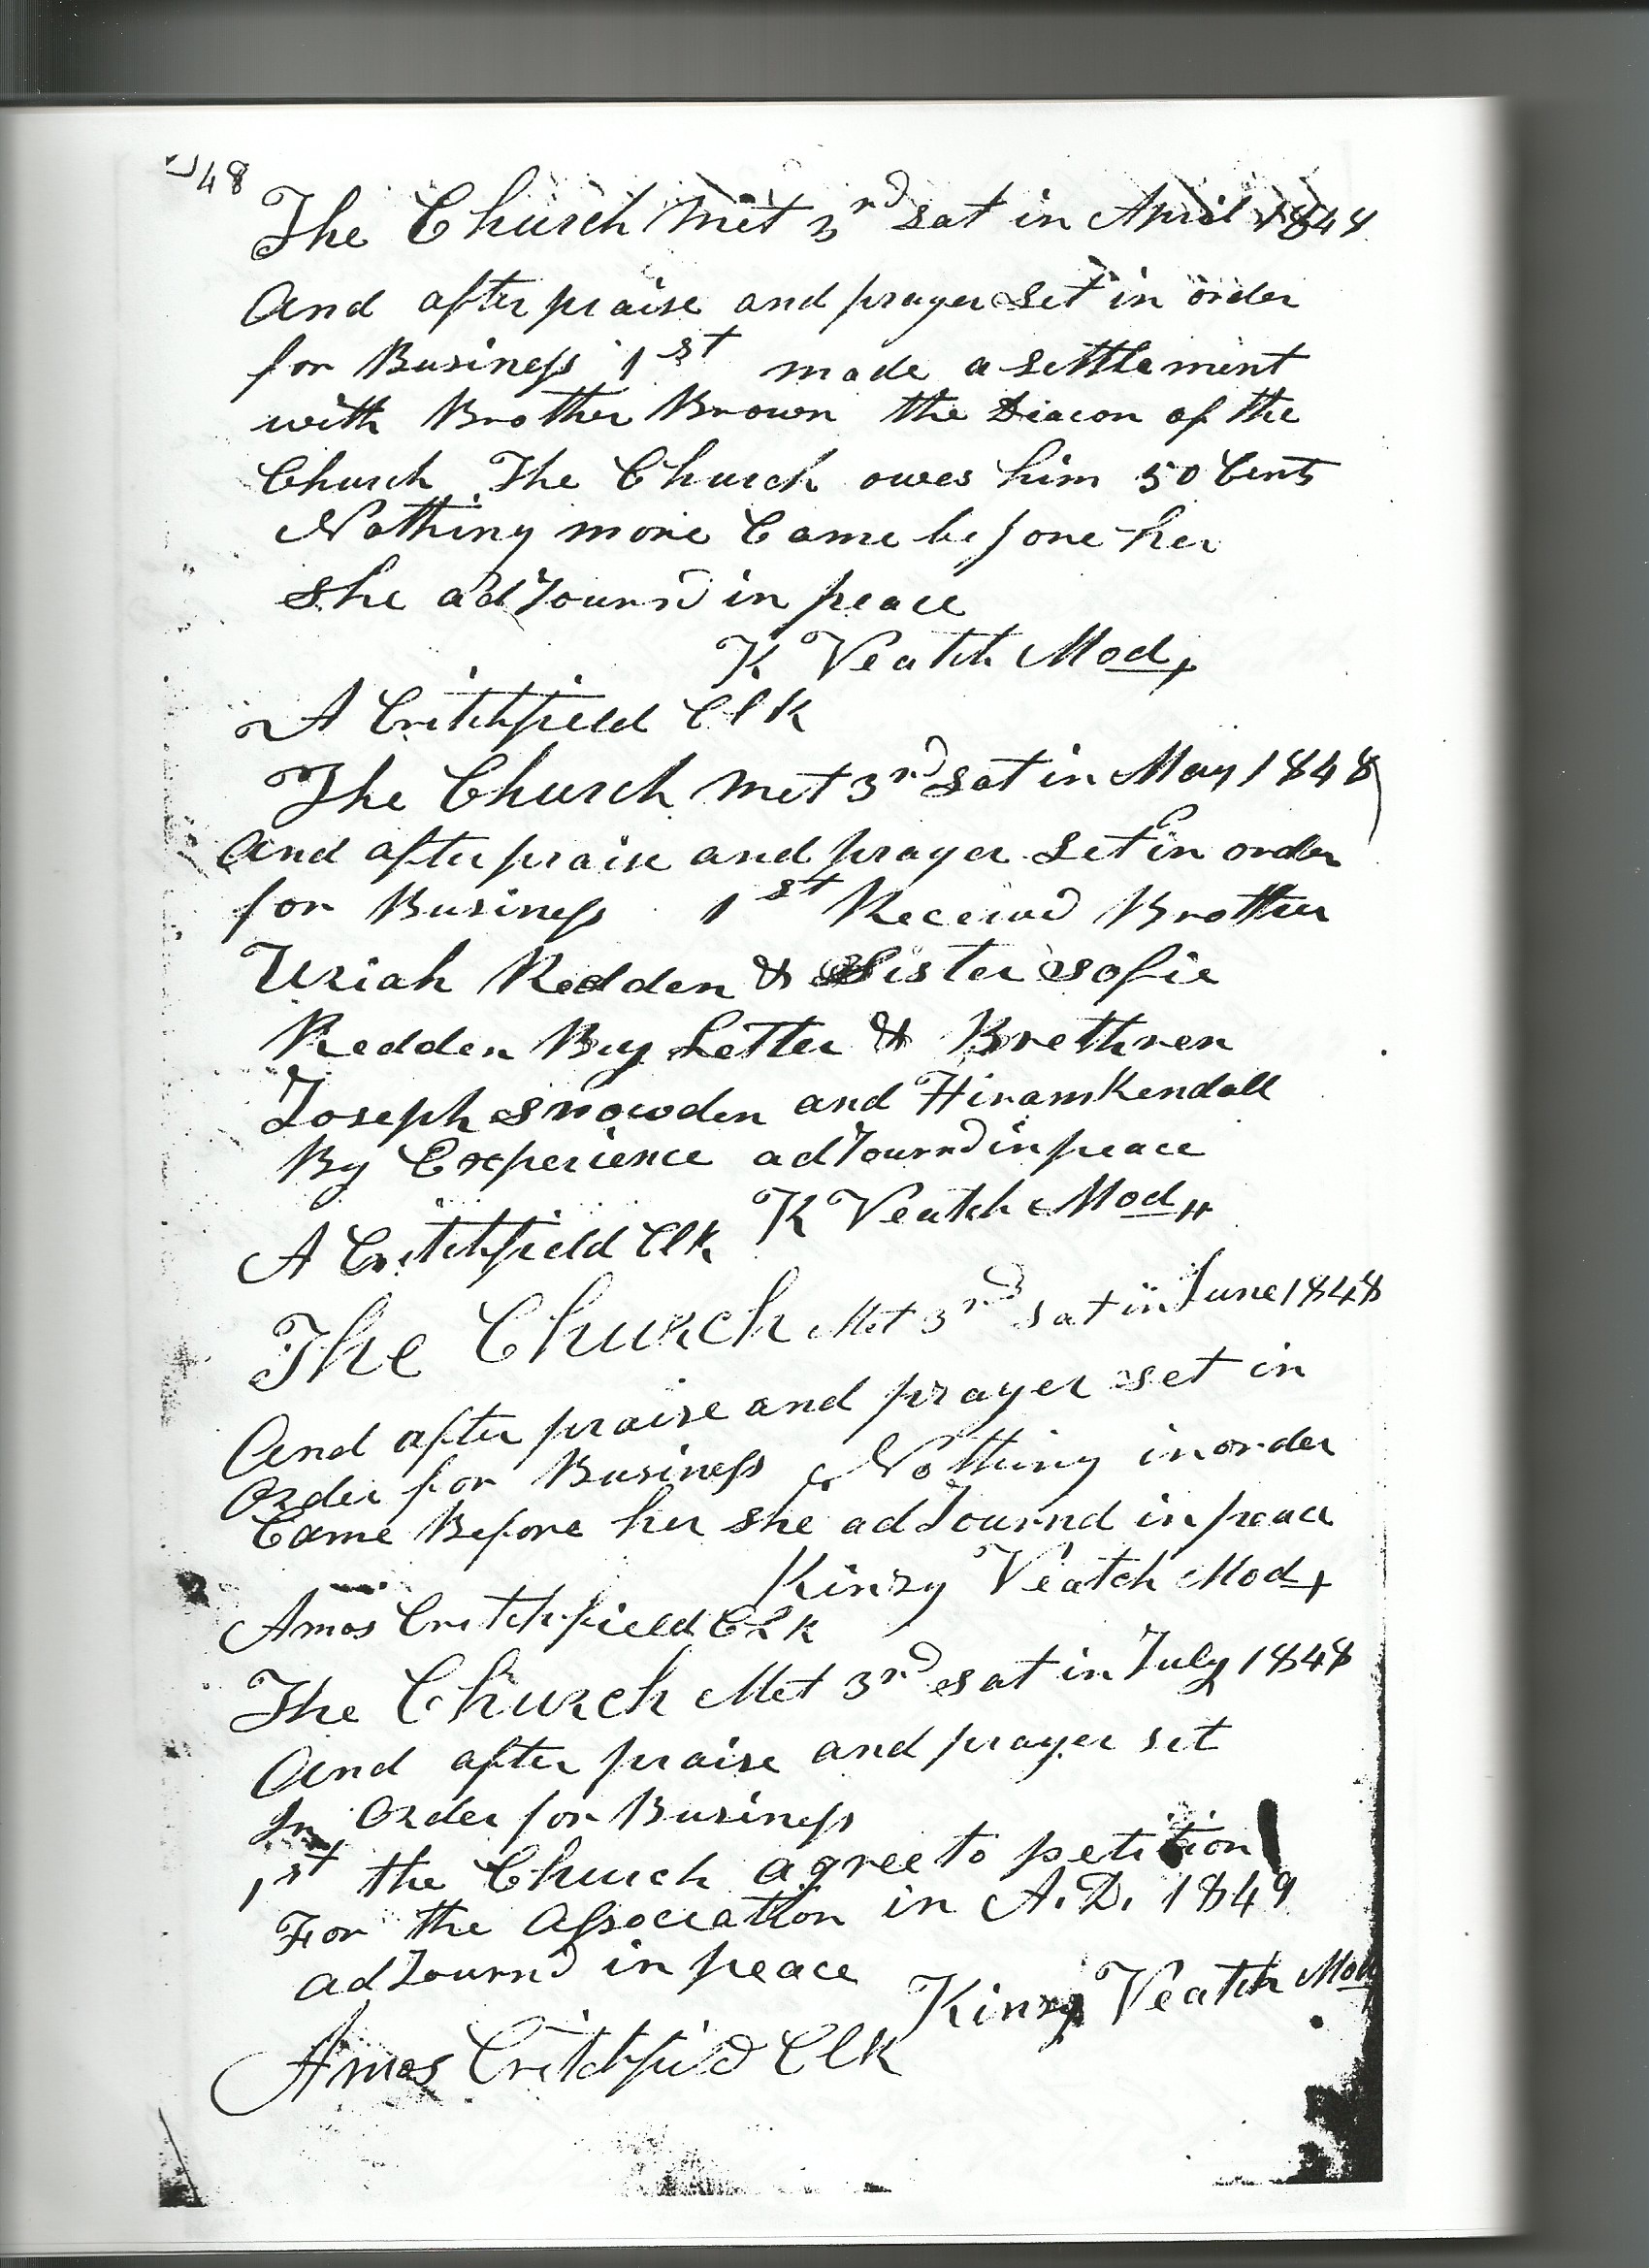 48
The Church Met 3rd Sat in April 1848
And after praise and prayer Set in order
for Business 1st made a Settlement
with Brother Brown the Deacon of the
Church The Church owes him 50 Cents
Nothing more Came before her
She adJournd in peace
K Veatch Mod
A Critchfield Clk
The Church Met 3rd Sat in May 1848
And after praise and prayer Set in order
for Business 1st Receivd Brother
Uriah Redden & Sister Sofie
Redden By Letter & Brethren
Joseph Snowden and Hiram Kendall
By Experience adJournd in peace
K Veatch Mod
A Critchfield Clk
The Church Met 3rd Sat in June 1848
And after praise and prayer set in
Order for Business Nothing in order
Came Before her she adJournd in peace
Kinzy Veatch Mod
Amos Critchfield Clk
The Church Met 3rd Sat in July 1848
And after praise and prayer set
In Order for Business
1st the Church agree to petition
For the Association in A.D. 1849
adJournd in peace
Kinzy Veatch Mod
Amos Critchfield Clk